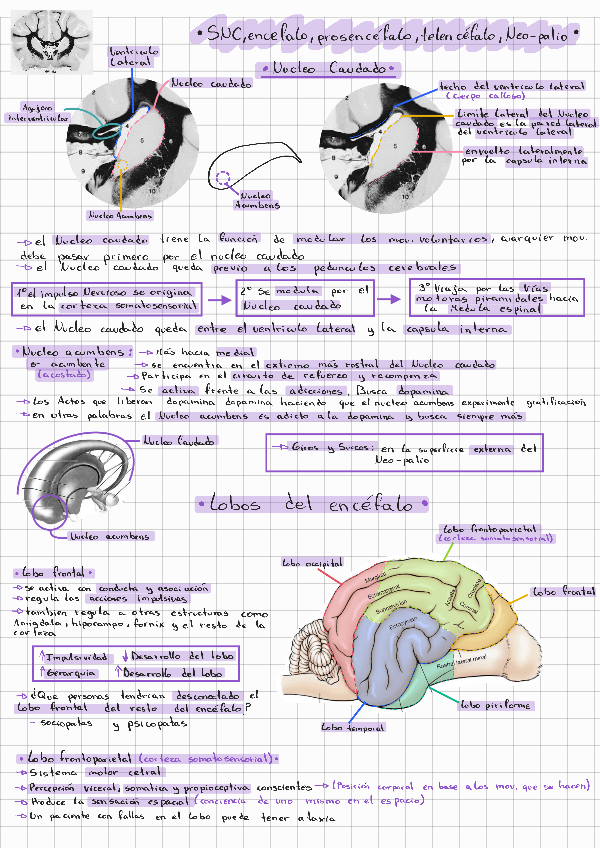 • SNC, encéfalo, prosencéfalo, telencéfalo, Neo-palio •
• Nucleo Caudado •
Ventriculo
Lateral
Nucleo caudado
Agujero
interventricular
Nucleo Acumbens
Nucleo
Acumbens
techo del ventriculo lateral
(cuerpo calloso)
Limite lateral del Nucleo
caudado es la pared lateral
del ventriculo lateral
envuelto lateralmente
por la capsula interna
2
4
5
6
8
9
10
2
4
5
6
8
9
10
→ el Nucleo caudado tiene la función de modular los mov. voluntarios, cualquier mov.
debe pasar primero por el nucleo caudado
→ el Nucleo caudado queda previo a los pedunculos cerebrales
1º el impulso Nervioso se origina
en la corteza somatosensorial
2º Se modula por el
Nucleo caudado
3º Viaja por las vías
motoras piramidales hacia
la Medula espinal
→ el Nucleo caudado queda entre el ventriculo lateral y la capsula interna
• Nucleo acumbens:
o acumbente
(acostado)
→ Más hacia medial
→ se encuentra en el extremo más rostral del Nucleo caudado
→ Participa en el circuito de refuerzo y recompenza
→ Se activa frente a las adicciones, Busca dopamina
→ Los Actos que liberan dopamina dopamina haciendo que el nucleo acumbens experimente gratificación
→ en otras palabras el Nucleo acumbens es adicto a la dopamina y busca siempre más
Nucleo Caudado
Nucleo acumbens
→ Giros y Surcos: en la superficie externa del
Neo-palio
• Lobos del encéfalo •
• Lobo frontal •
→ se activa con conducta y asociación
→ regula las acciones impulsivas
→ tambien regula a otras estructuras como
Amigdala, hipocampo, fornix y el resto de la
corteza
↑ Impulsividad ↓ Desarrollo del lobo
↑ Gerarquia ↑ Desarrollo del lobo
→ ¿Que personas tendrian desconectado el
Lobo frontal del resto del encéfalo?
- sociopatas y psicopatas
Lobo occipital
Lobo frontoparietal
(corteza somatosensorial)
Lobo frontal
Lobo piriforme
Lobo temporal
Marginal
Ectomarginal
Suprasylvian
Ectosylvian
Cruciate
Rostral lateral rhinal
• Lobo frontoparietal (corteza somatosensorial) •
→ Sistema motor cetral
→ Percepción viceral, somatica y propioceptiva conscientes → (Posición corporal en base a los mov. que se hacen)
→ Produce la sensación espacial (conciencia de uno mismo en el espacio)
→ Un paciente con fallas en el lobo puede tener ataxia